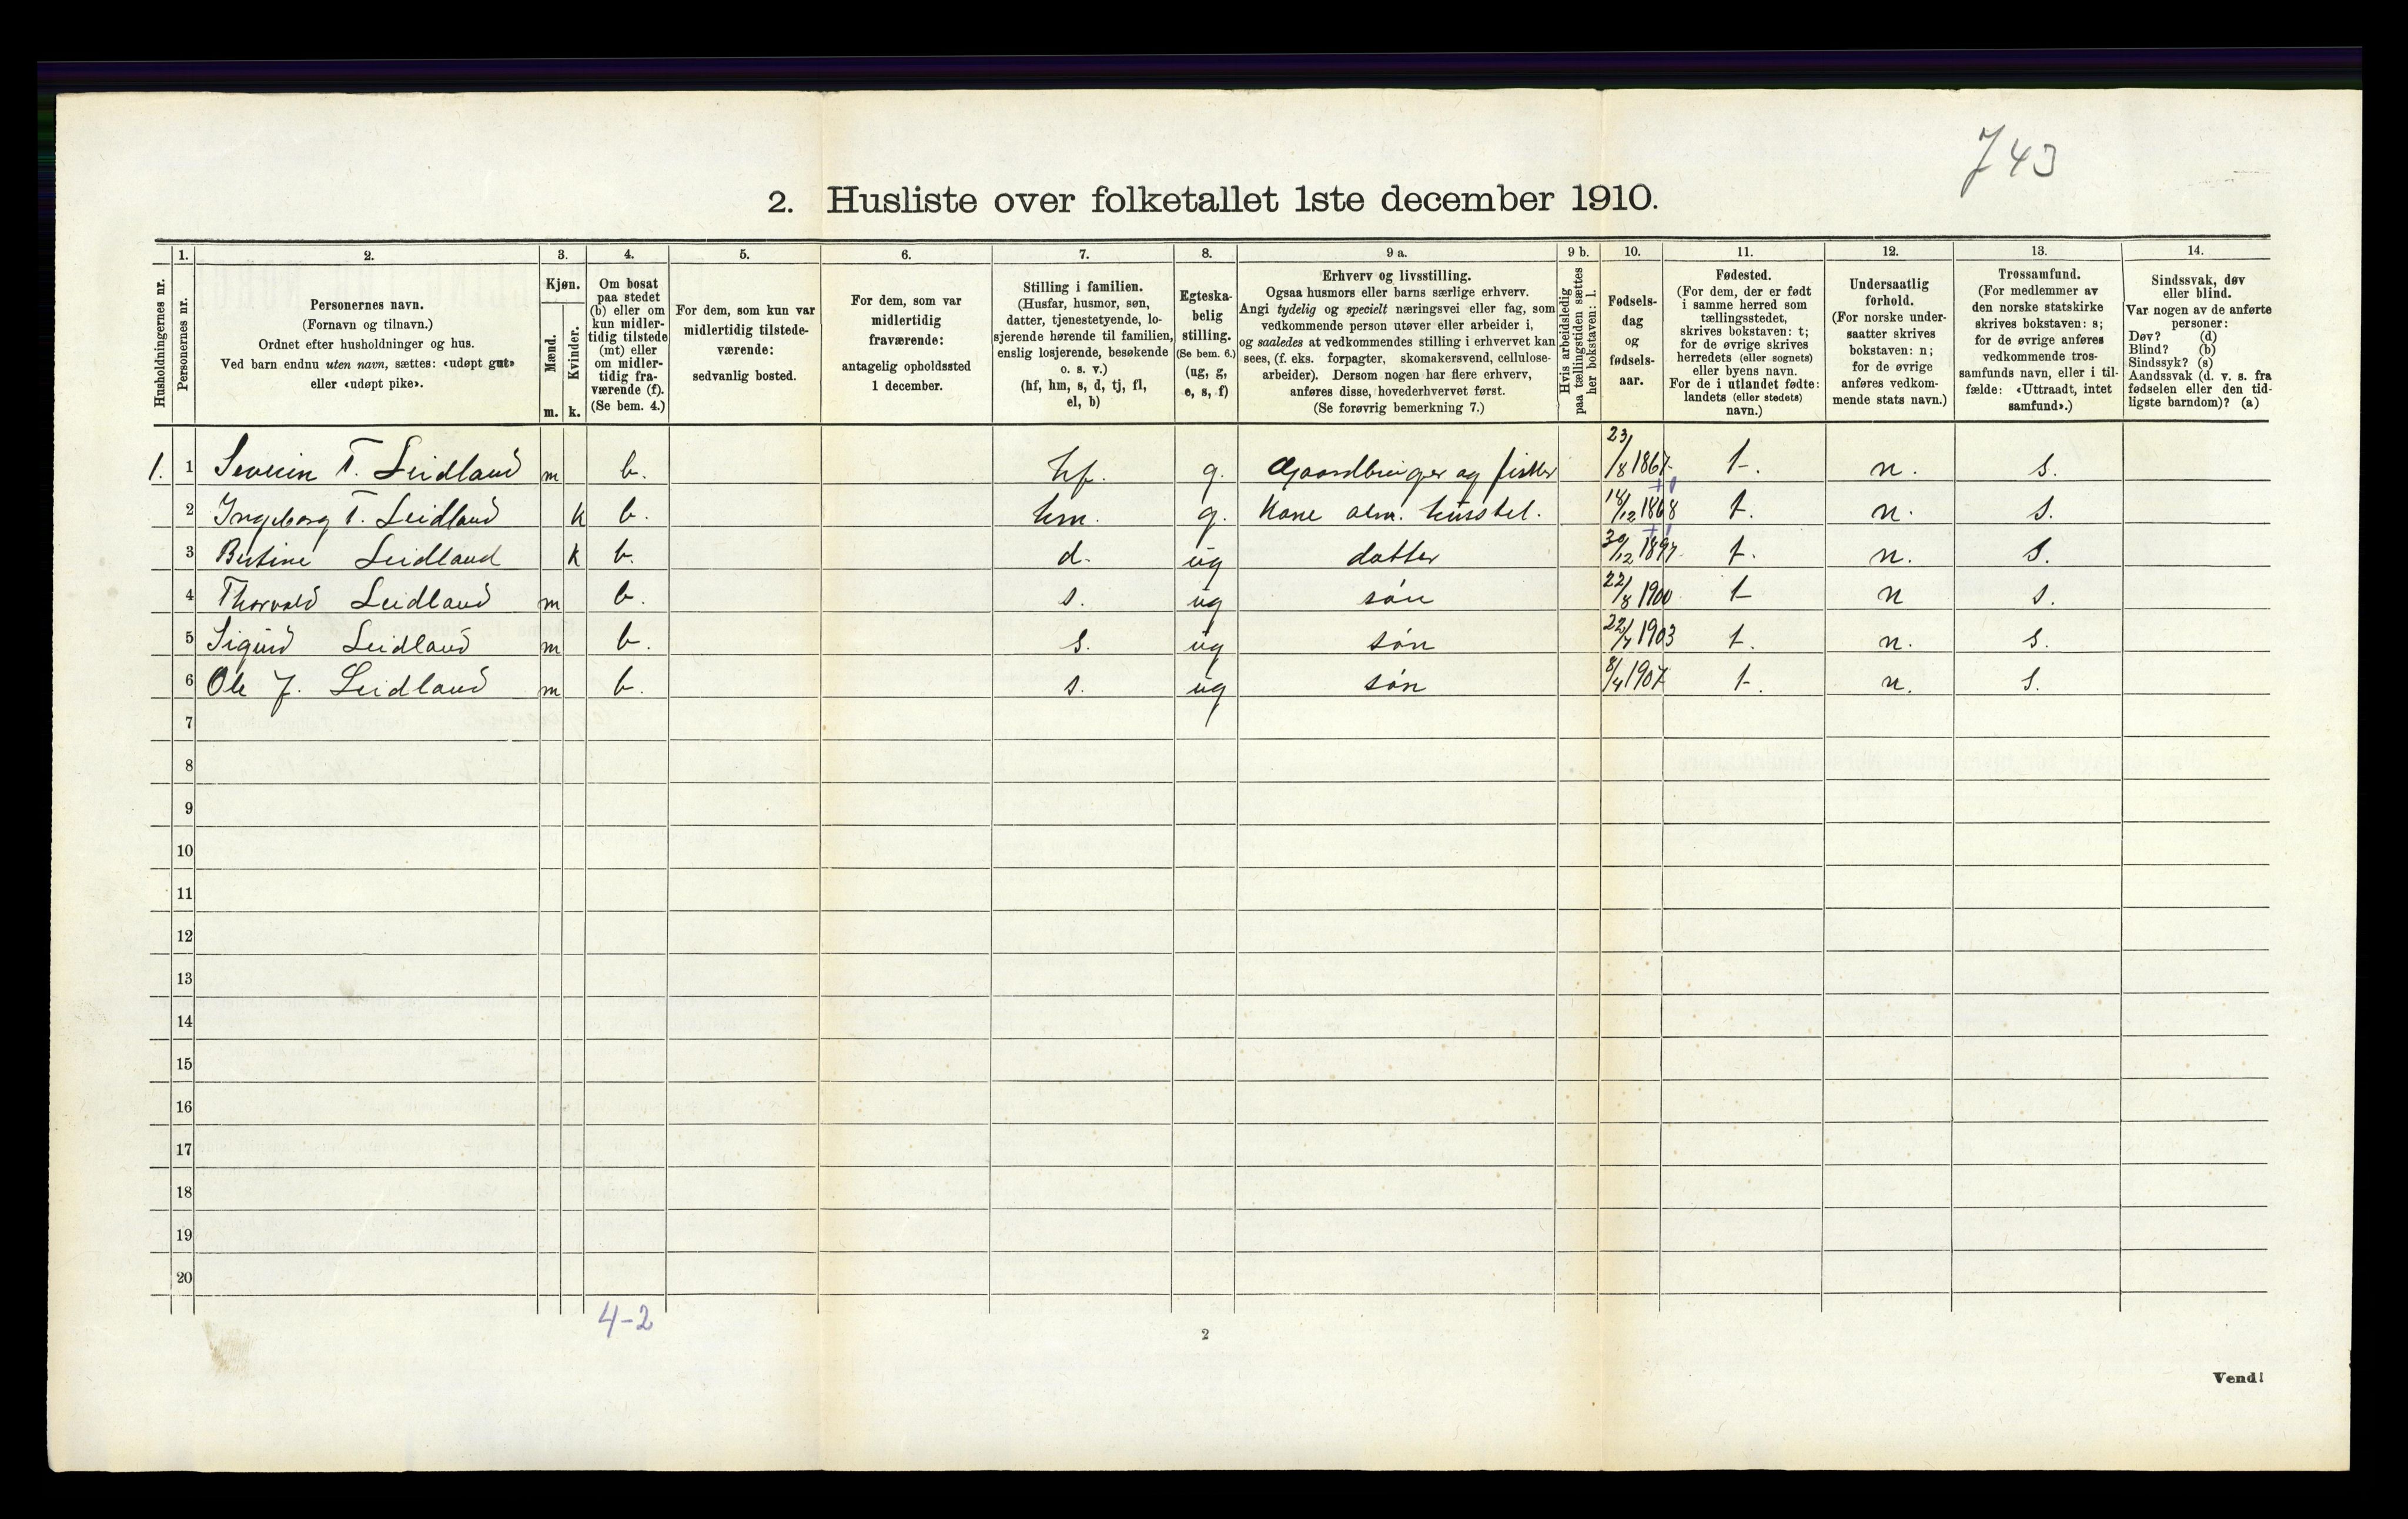 743
2. Husliste over folketallet 1ste december 1910.
Husholdningernes nr.
1.
Personernes nr.
2.
Personernes navn.
(Fornavn og tilnavn.)
Ordnet efter husholdninger og hus.
Ved barn endnu uten navn, sættes: «udøpt gut»
eller «udøpt pike».
3.
Kjøn.
Mænd.
m.
Kvinder.
k.
4.
Om bosat
paa stedet
(b) eller om
kun midler-
tidig tilstede
(mt) eller
om midler-
tidig fra-
værende (f).
(Se bem. 4.)
5.
For dem, som kun var
midlertidig tilstede-
værende:
sedvanlig bosted.
6.
For dem, som var
midlertidig
fraværende:
antagelig opholdssted
1 december.
7.
Stilling i familien.
(Husfar, husmor, søn,
datter, tjenestetyende, lo-
sjerende hørende til familien,
enslig losjerende, besøkende
o. s. v.)
(hf, hm, s, d, tj, fl,
el, b)
8.
Egteska-
belig
stilling.
(Se bem. 6.)
(ug, g,
e, s, f)
9 a.
Erhverv og livsstilling.
Ogsaa husmors eller barns særlige erhverv.
Angi tydelig og specielt næringsvei eller fag, som
vedkommende person utøver eller arbeider i,
og saaledes at vedkommendes stilling i erhvervet kan
sees, (f. eks. forpagter, skomakersvend, cellulose-
arbeider). Dersom nogen har flere erhverv,
anføres disse, hovederhvervet først.
(Se forøvrig bemerkning 7.)
9 b.
Hvis arbeidsledig
paa tællingstiden sættes
her bokstaven: l.
10.
Fødsels-
dag
og
fødsels-
aar.
11.
Fødested.
(For dem, der er født
i samme herred som
tællingsstedet,
skrives bokstaven: t;
for de øvrige skrives
herredets (eller sognets)
eller byens navn.
For de i utlandet fødte:
landets (eller stedets)
navn.)
12.
Undersaatlig
forhold.
(For norske under-
saatter skrives
bokstaven: n;
for de øvrige
anføres vedkom-
mende stats navn.)
13.
Trossamfund.
(For medlemmer av
den norske statskirke
skrives bokstaven: s;
for de øvrige anføres
vedkommende tros-
samfunds navn, eller i til-
fælde: «Uttraadt, intet
samfund».)
14.
Sindssvak, døv
eller blind.
Var nogen av de anførte
personer:
Døv? (d)
Blind? (b)
Sindssyk? (s)
Aandssvak (d. v. s. fra
fødselen eller den tid-
ligste barndom)? (a)
1. 1 Severin T. Leidland m b. hf. g. Gaardbruger og fisker 23/8 1867 t. n. s.
2 Ingeborg T. Leidland k b. hm. g. Kone alm. husstel. 14/12 1868 t. n. s.
3 Bertine Leidland k b. d. ug datter 30/12 1897. t. n. s.
4 Thorvald Leidland m b. s. ug søn 22/8 1900 t n s.
5 Sigurd Leidland m b. s. ug søn 22/7 1903 t. n. s.
6 Ole J. Leidland m b. s. ug søn 8/4 1907 t. n. s.
7
8
9
10
11
12
13
14
15
16
17
18
19
20
4-2
2
Vend!